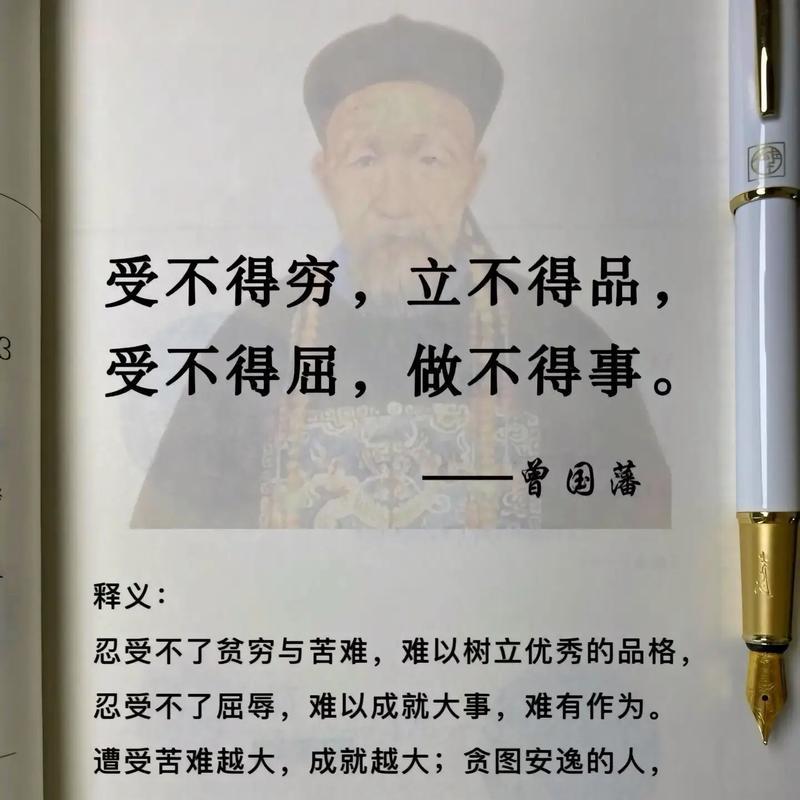 受不得穷，立不得品，
受不得屈，做不得事。
——曾国藩
释义：
忍受不了贫穷与苦难，难以树立优秀的品格，
忍受不了屈辱，难以成就大事，难有作为。
遭受苦难越大，成就越大；贪图安逸的人，
3